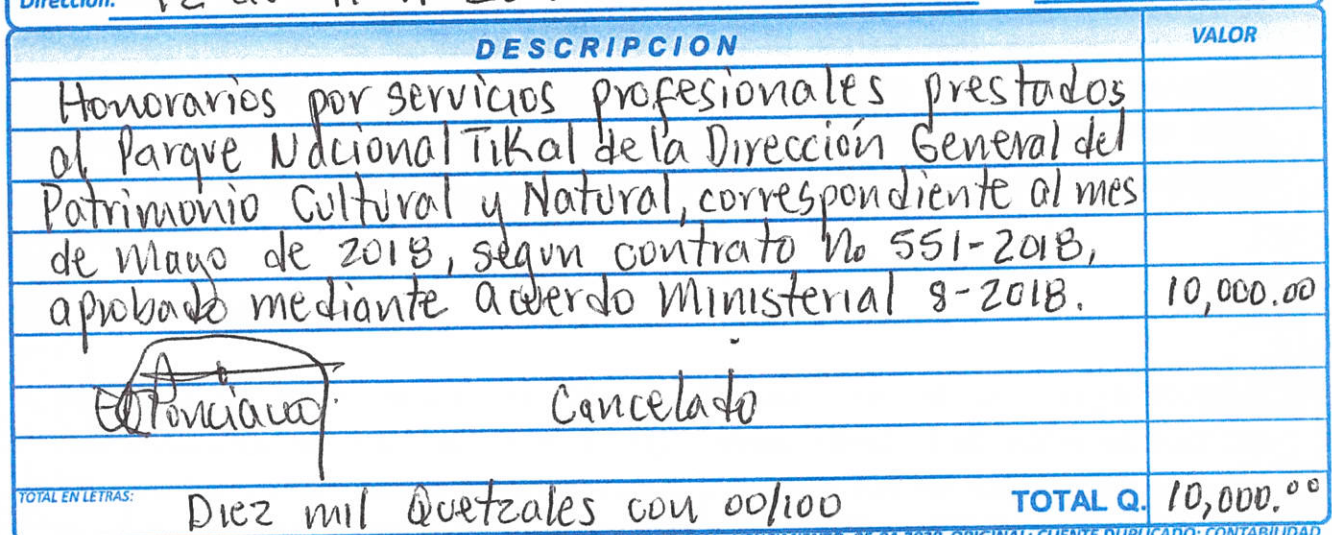 Dirección:
DESCRIPCION VALOR
Honorarios por servicios profesionales prestados
al Parque Nacional Tikal de la Dirección General del
Patrimonio Cultural y Natural, correspondiente al mes
de Mayo de 2018, segun contrato No 551-2018,
aprobado mediante acuerdo Ministerial 8-2018. 10,000.00
Ponciano Cancelado
TOTAL EN LETRAS: Diez mil Quetzales con 00/100 TOTAL Q. 10,000.00
ORIGINAL: CLIENTE DUPLICADO: CONTABILIDAD